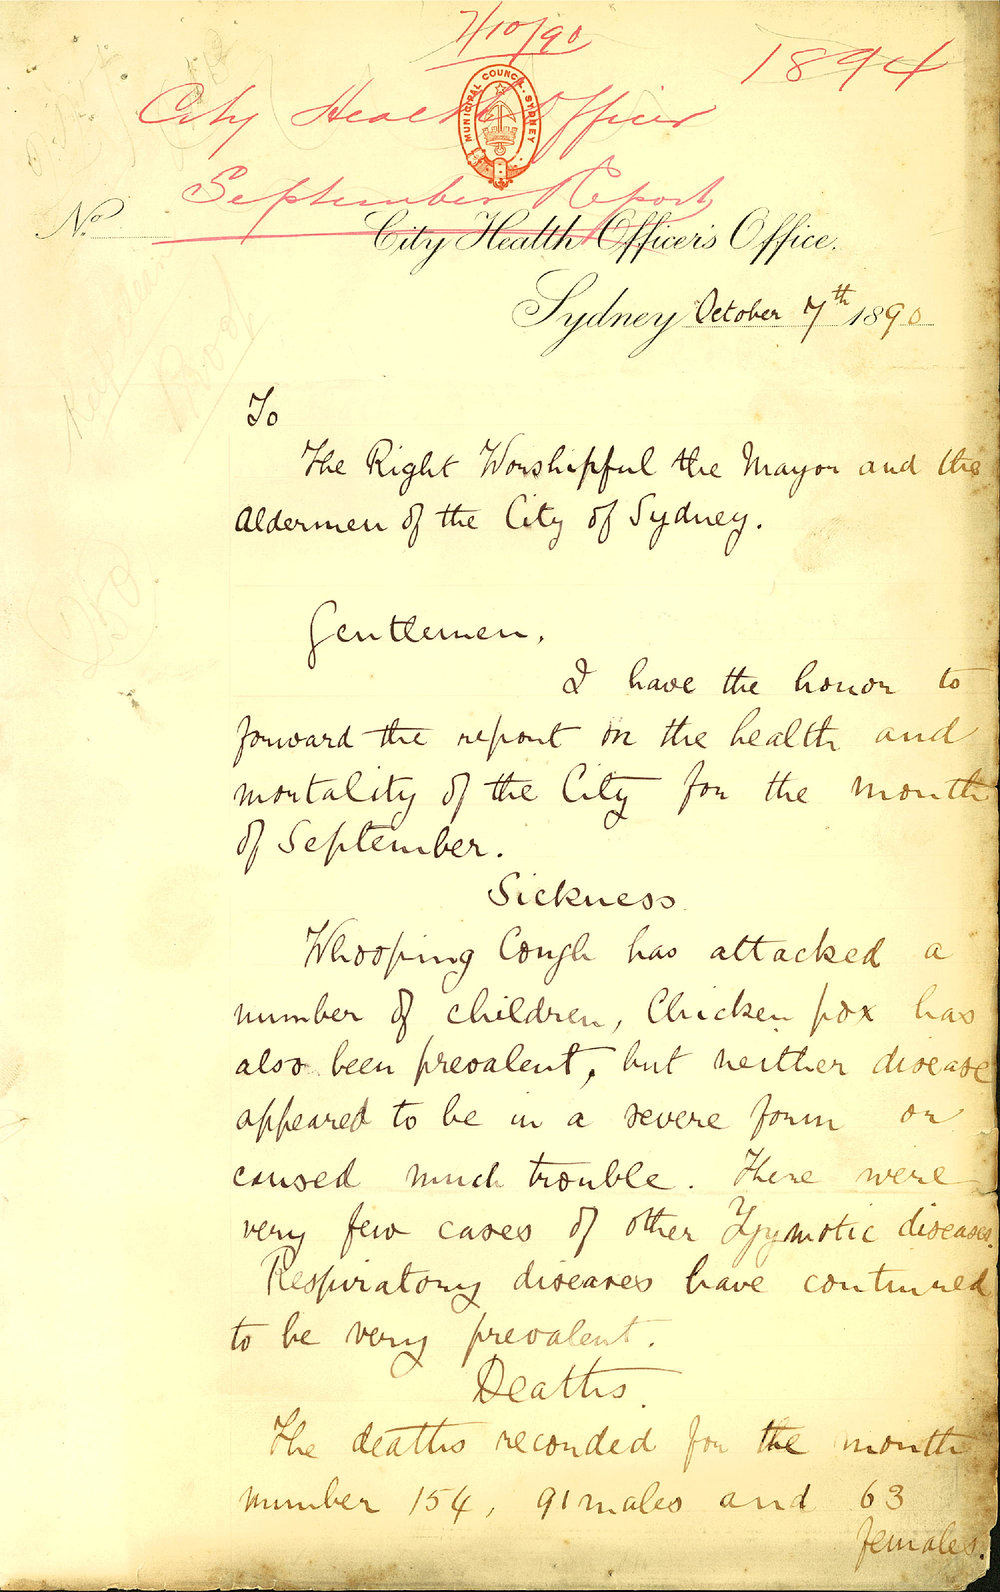 7/10/90
1894
City Health Officer
MUNICIPAL COUNCIL SYDNEY
September Report
No.
City Health Officer's Office.
Sydney October 7th 1890
To
The Right Worshipful the Mayor and the
Aldermen of the City of Sydney.
Gentlemen,
I have the honor to
forward the report on the health and
mortality of the City for the month
of September.
Sickness
Whooping Cough has attacked a
number of children, Chicken pox has
also been prevalent, but neither disease
appeared to be in a severe form or
caused much trouble. There were
very few cases of other Zymotic diseases.
Respiratory diseases have continued
to be very prevalent.
Deaths.
The deaths recorded for the month
number 154, 91 males and 63
females.